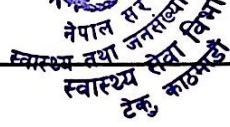 नेपाल सर
स्वास्थ्य तथा जनसंख्या
स्वास्थ्य सेवा विभा
टेकु, काठमाडौं